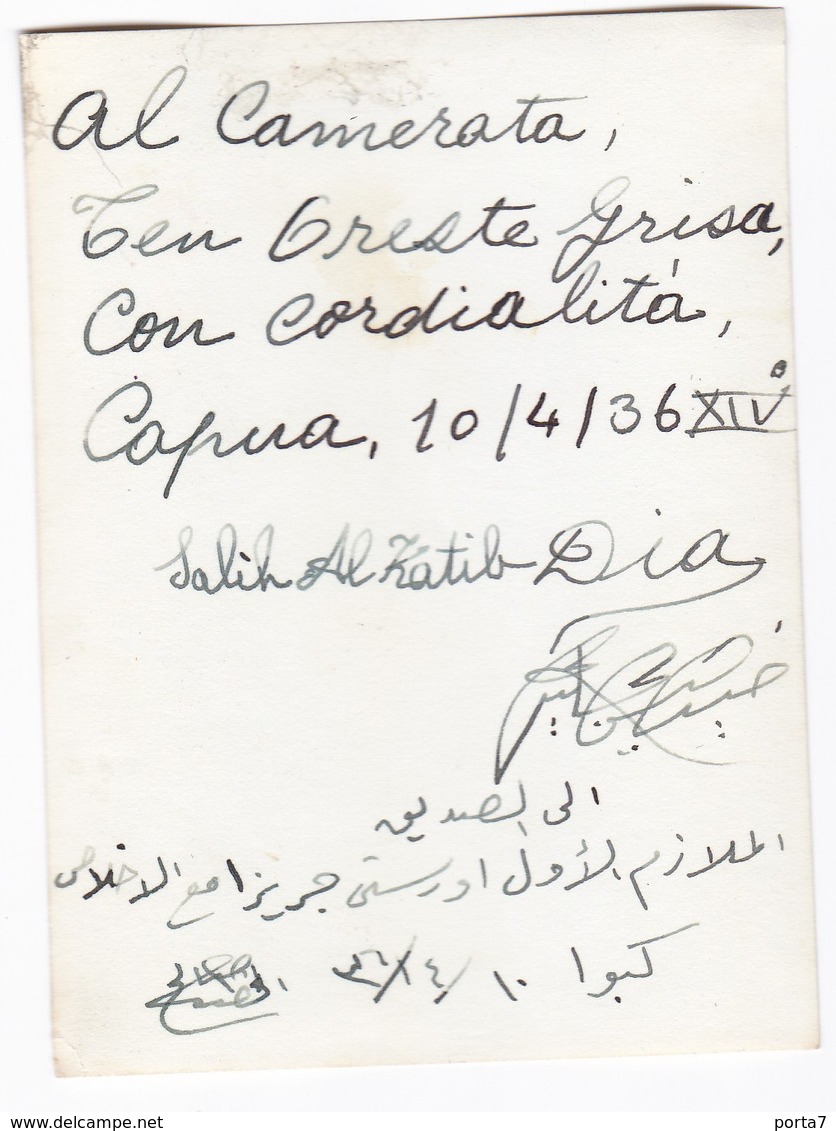 Al Camerata,
Ten Oreste Grisa,
Con cordialità,
Capua, 10/4/36 XIVº
Salih Al Katib Dia
الى الصديق
الملازم الأول اورستى جريزا مع الاخلاص
كبوا ١٠/٤/٣٦
delcampe.net
porta7